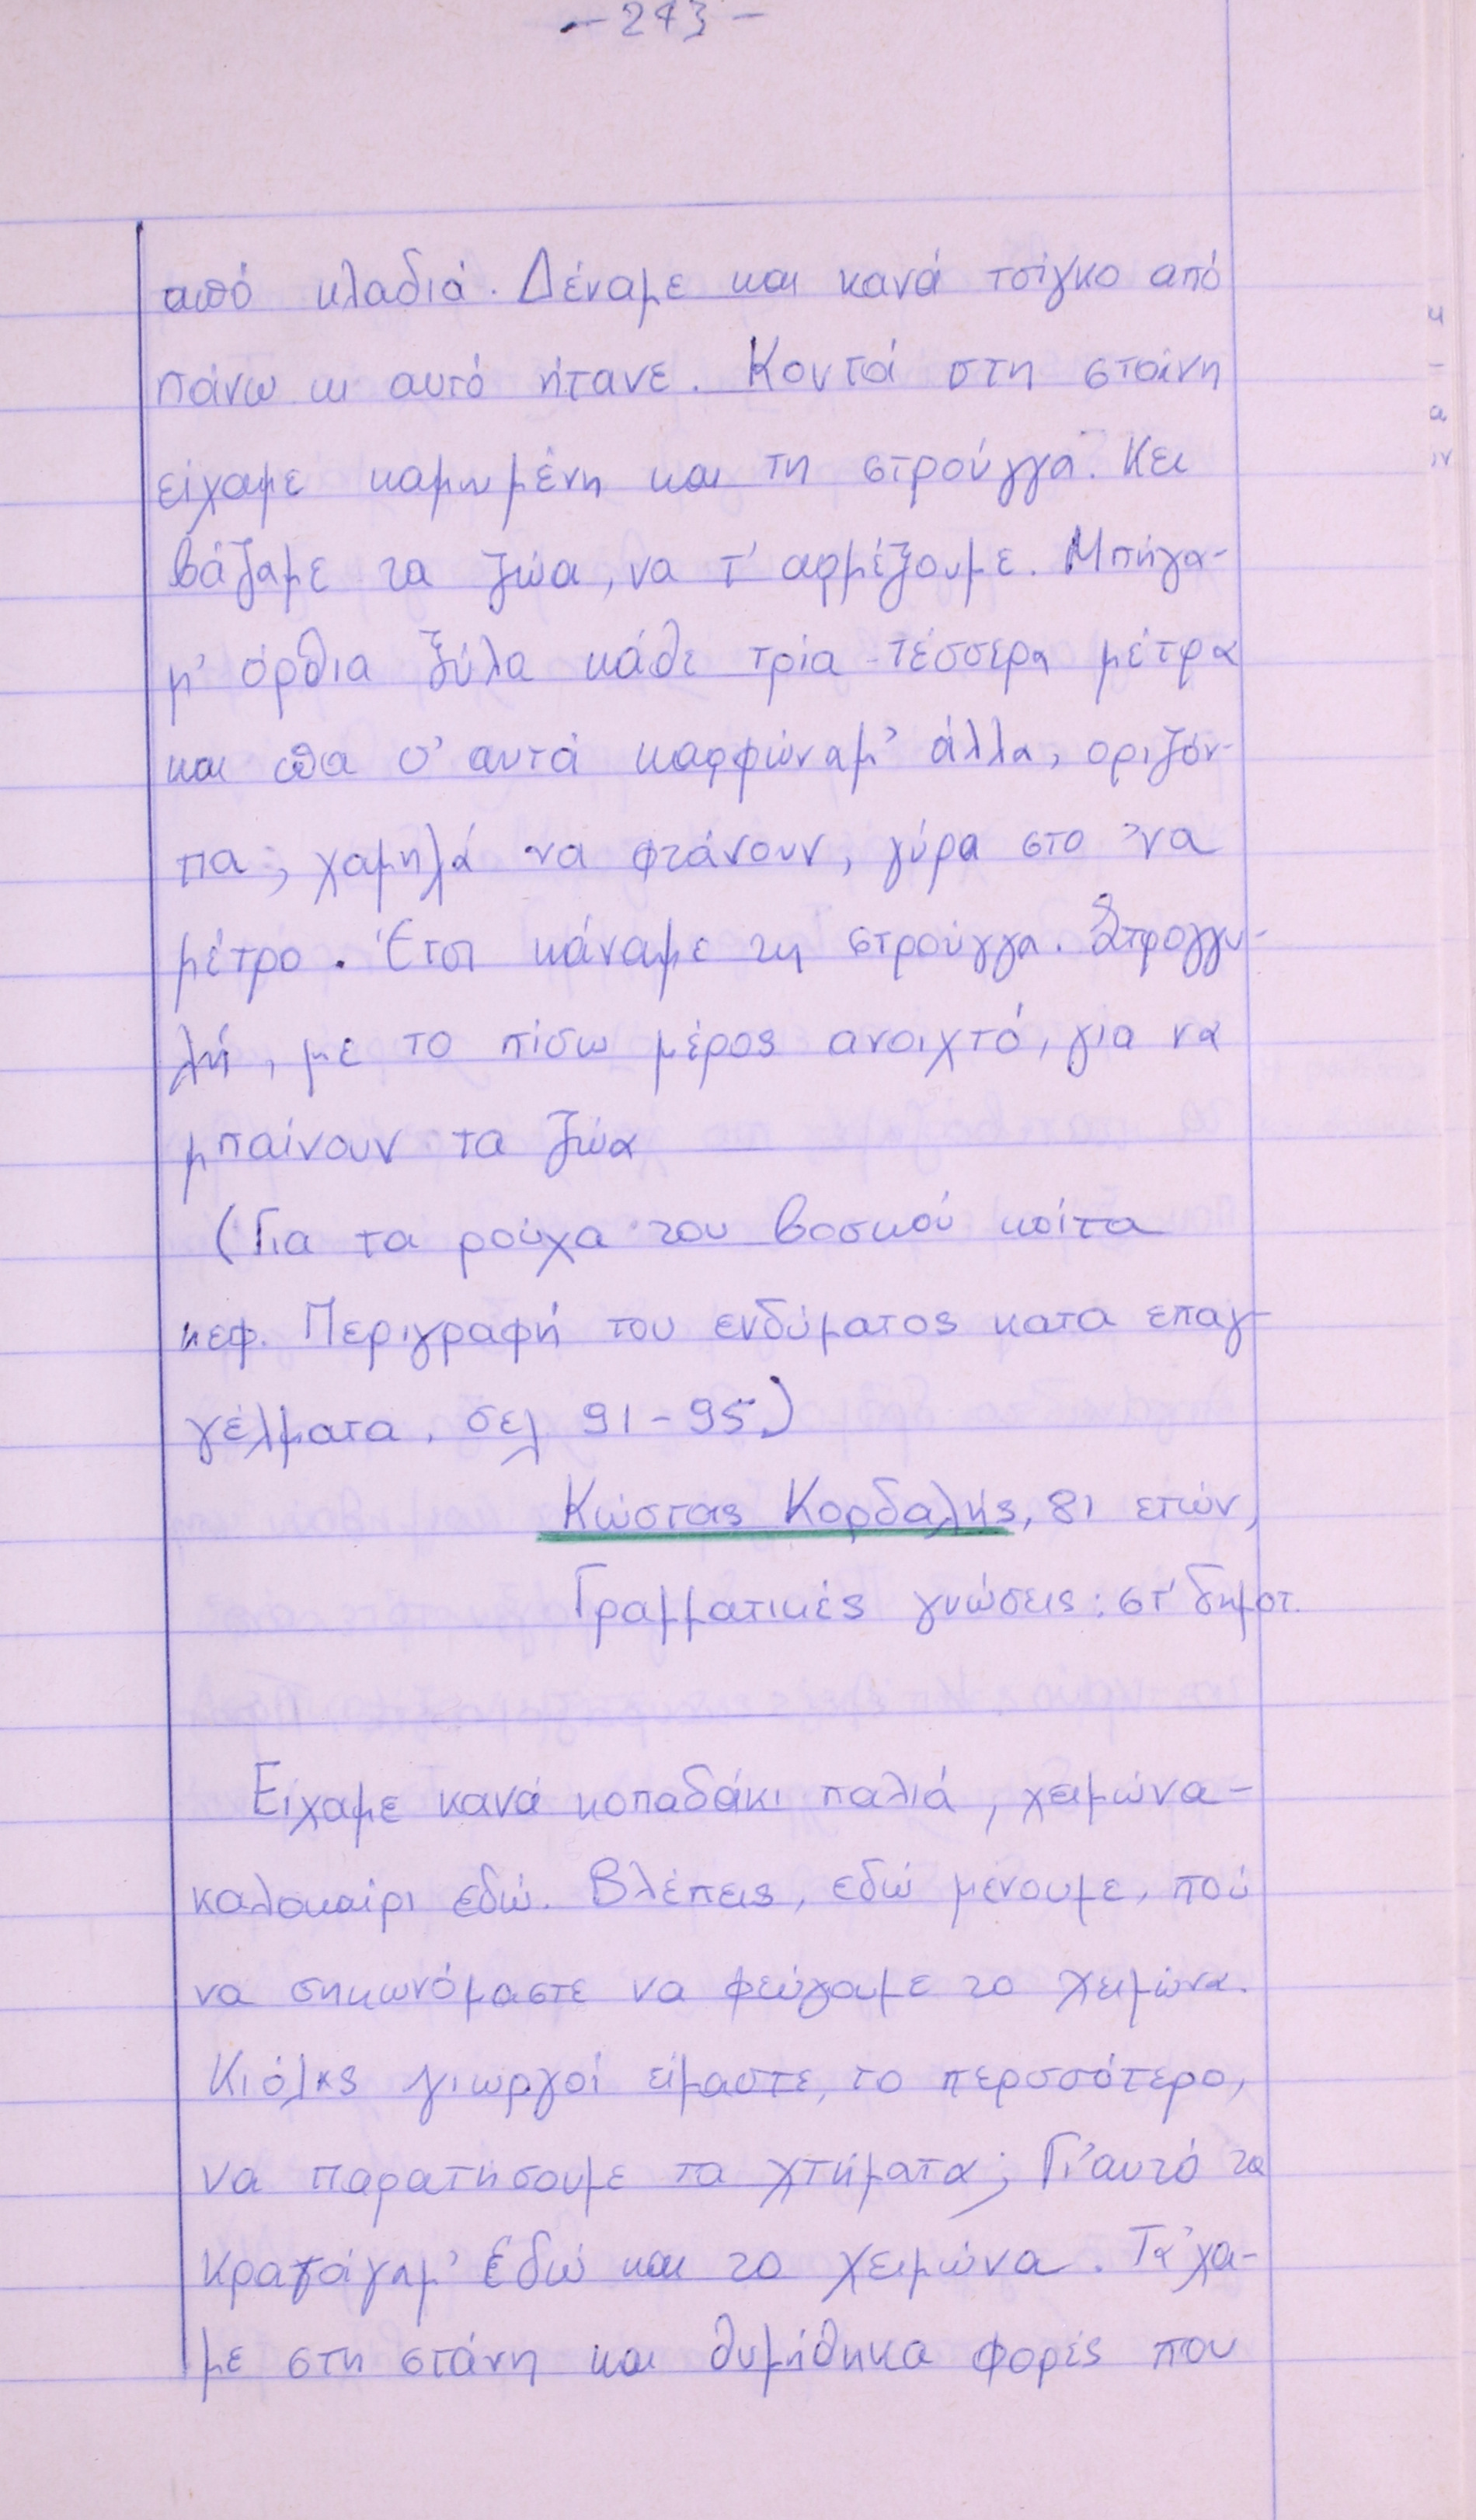 - 243 -
από κλαδιά. Δέναμε και κανά τσίγκο από
πάνω κι αυτό ήτανε. Κοντά στη στάνη
είχαμε καμωμένη και τη στρούγγα. Κει
βάζαμε τα ζώα, να τ' αρμέξουμε. Μπήγα-
μ' όρθια ξύλα κάθε τρία-τέσσερα μέτρα
και πα σ' αυτά καρφώναμ' άλλα, οριζόν-
τια, χαμηλά να φτάνουν, γύρα στο 'να
μέτρο. Έτσι κάναμε τη στρούγγα. Στρογγυ-
λή, με το πίσω μέρος ανοιχτό, για να
μπαίνουν τα ζώα
(Για τα ρούχα του βοσκού κοίτα
κεφ. Περιγραφή του ενδύματος κατα επαγ-
γέλματα, σελ 91-95)
Κώστας Κορδαλής, 81 ετών,
Γραμματικές γνώσεις: στ' δημοτ.
Είχαμε κανά κοπαδάκι παλιά, χειμώνα-
καλοκαίρι εδώ. Βλέπεις, εδώ μένουμε, πού
να σηκωνόμαστε να φεύγαμε το χειμώνα.
Κιόλας γιωργοί είμαστε, το περσσότερο,
να παρατήσουμε τα χτήματα; Γι'αυτό τα
κρατάγαμ' εδώ και το χειμώνα. Τα'χα-
με στη στάνη και θυμήθηκα φορές που